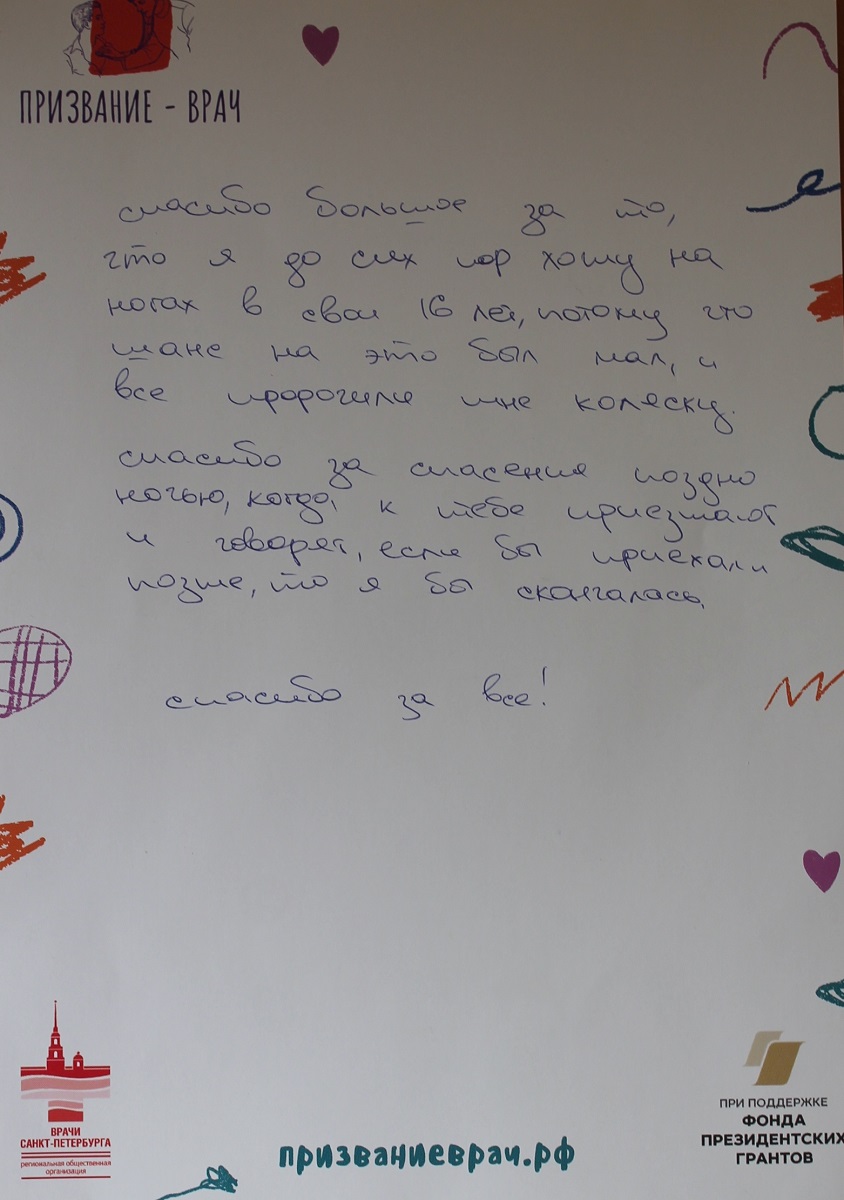 ПРИЗВАНИЕ - ВРАЧ
спасибо большое за то,
что я до сих пор хожу на
ногах в свои 16 лет, потому что
шанс на это был мал, и
все пророчили мне коляску.
спасибо за спасения поздно
ночью, когда к тебе приезжают
и говорят, если бы приехали
позже, то я бы скончалась.
спасибо за все!
ВРАЧИ
САНКТ-ПЕТЕРБУРГА
региональная общественная
организация
призваниеврач.рф
ПРИ ПОДДЕРЖКЕ
ФОНДА
ПРЕЗИДЕНТСКИХ
ГРАНТОВ